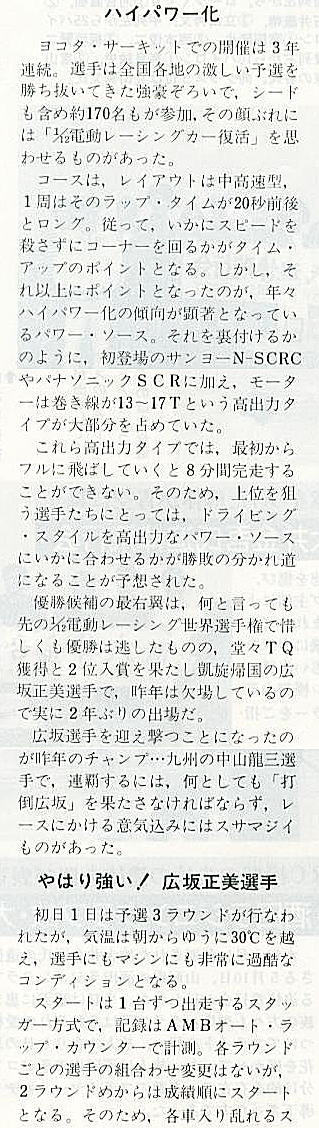 ハイパワー化
ヨコタ・サーキットでの開催は3年
連続。選手は全国各地の激しい予選を
勝ち抜いてきた強豪ぞろいで，シード
も含め約170名もが参加，その顔ぶれに
は「1/12電動レーシングカー復活」を思
わせるものがあった。
コースは，レイアウトは中高速型，
1周はそのラップ・タイムが20秒前後
とロング。従って，いかにスピードを
殺さずにコーナーを回るかがタイム・
アップのポイントとなる。しかし，そ
れ以上にポイントとなったのが，年々
ハイパワー化の傾向が顕著となってい
るパワー・ソース。それを裏付けるか
のように，初登場のサンヨーN-SCRC
やパナソニックSCRに加え，モータ
ーは巻き線が13〜17Tという高出力タ
イプが大部分を占めていた。
これら高出力タイプでは，最初から
フルに飛ばしていくと8分間完走する
ことができない。そのため，上位を狙
う選手たちにとっては，ドライビング
・スタイルを高出力なパワー・ソース
にいかに合わせるかが勝敗の分かれ道
になることが予想された。
優勝候補の最右翼は，何と言っても
先の1/12電動レーシング世界選手権で惜
しくも優勝は逃したものの，堂々TQ
獲得と2位入賞を果たし凱旋帰国の広
坂正美選手で，昨年は欠場しているの
で実に2年ぶりの出場だ。
広坂選手を迎え撃つことになったの
が昨年のチャンプ…九州の中山龍三選
手で，連覇するには，何としても「打
倒広坂」を果たさなければならず，レ
ースにかける意気込みにはスサマジイ
ものがあった。
やはり強い！ 広坂正美選手
初日1日は予選3ラウンドが行なわ
れたが，気温は朝からゆうに30℃を越
え，選手にもマシンにも非常に過酷な
コンディションとなる。
スタートは1台ずつ出走するスタッ
ガー方式で，記録はAMBオート・ラ
ップ・カウンターで計測。各ラウンド
ごとの選手の組合わせ変更はないが，
2ラウンドめからは成績順にスタート
となる。そのため，各車入り乱れるス